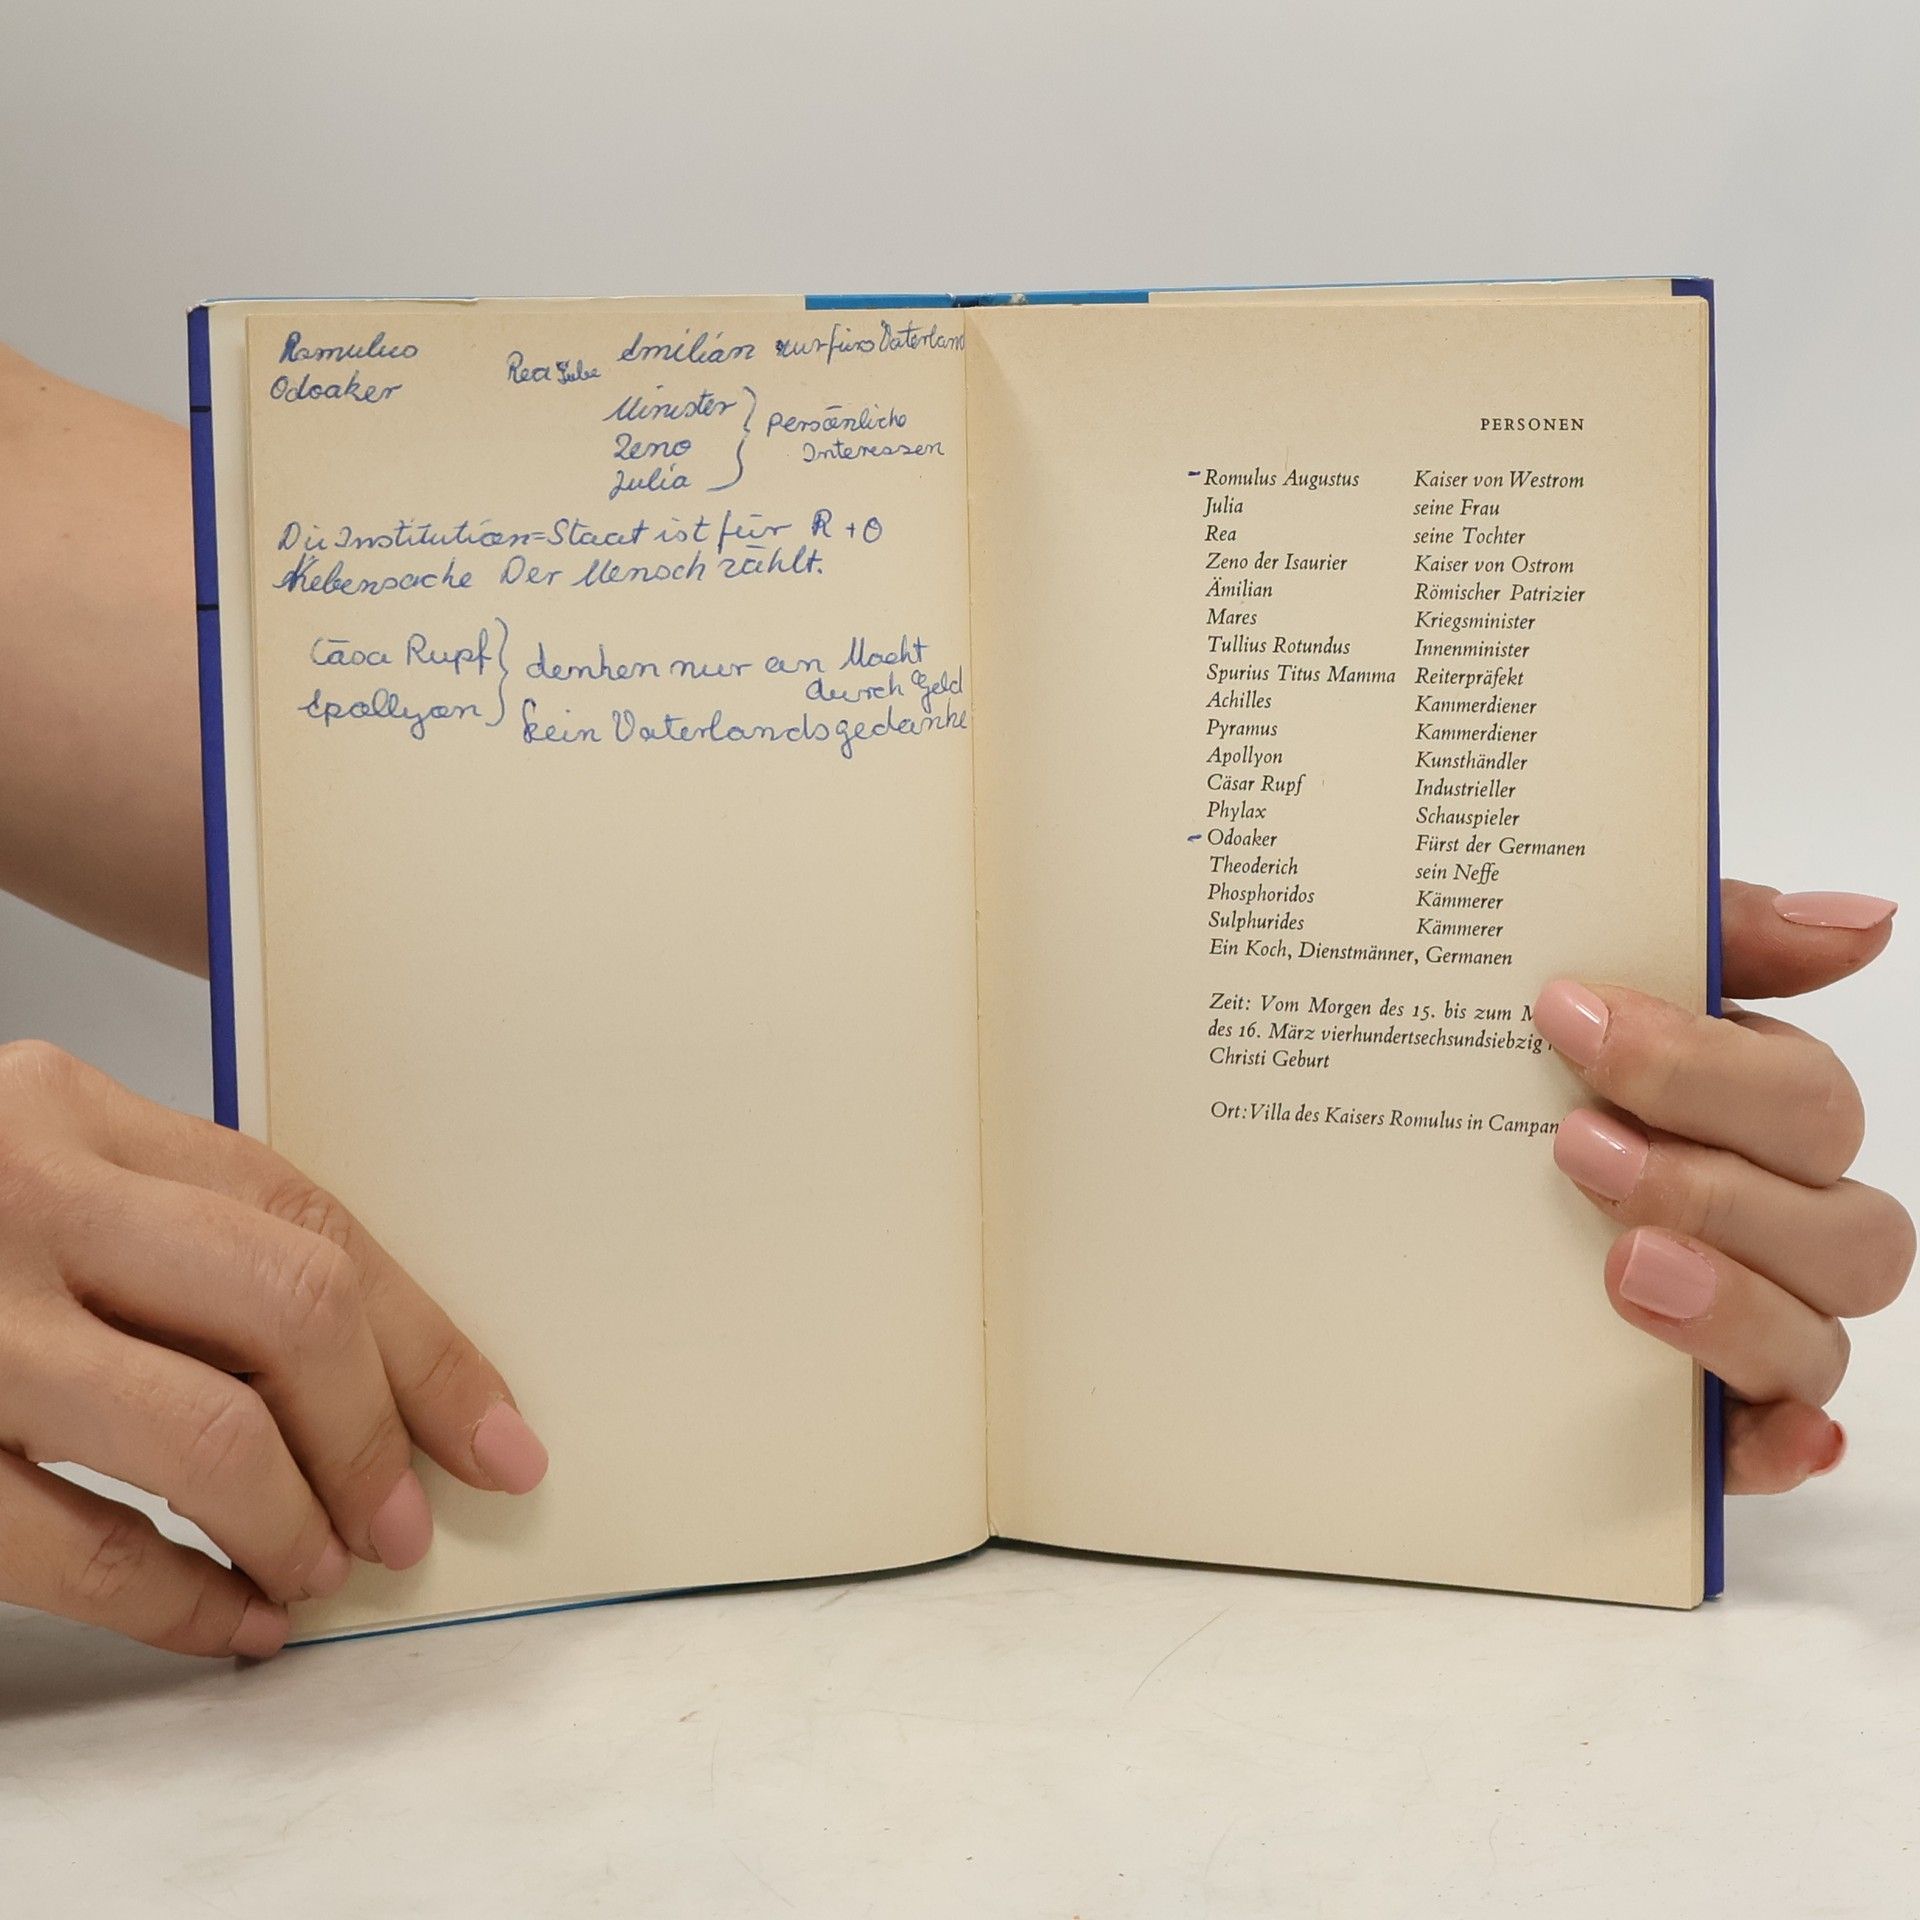 Romulus
Odoaker
Rea Liebe
Emilian nur fürs Vaterland
Minister
Zeno
Julia
persönliche
Interessen
Die Institution=Staat ist für R + O
Nebensache Der Mensch zählt.
Cäsa Rupf
Epollyon
denken nur an Macht
durch Geld
kein Vaterlandsgedanke
PERSONEN
Romulus Augustus Kaiser von Westrom
Julia seine Frau
Rea seine Tochter
Zeno der Isaurier Kaiser von Ostrom
Ämilian Römischer Patrizier
Mares Kriegsminister
Tullius Rotundus Innenminister
Spurius Titus Mamma Reiterpräfekt
Achilles Kammerdiener
Pyramus Kammerdiener
Apollyon Kunsthändler
Cäsar Rupf Industrieller
Phylax Schauspieler
Odoaker Fürst der Germanen
Theoderich sein Neffe
Phosphoridos Kämmerer
Sulphurides Kämmerer
Ein Koch, Dienstmänner, Germanen
Zeit: Vom Morgen des 15. bis zum
des 16. März vierhundertsechsundsiebzig
Christi Geburt
Ort: Villa des Kaisers Romulus in Campan